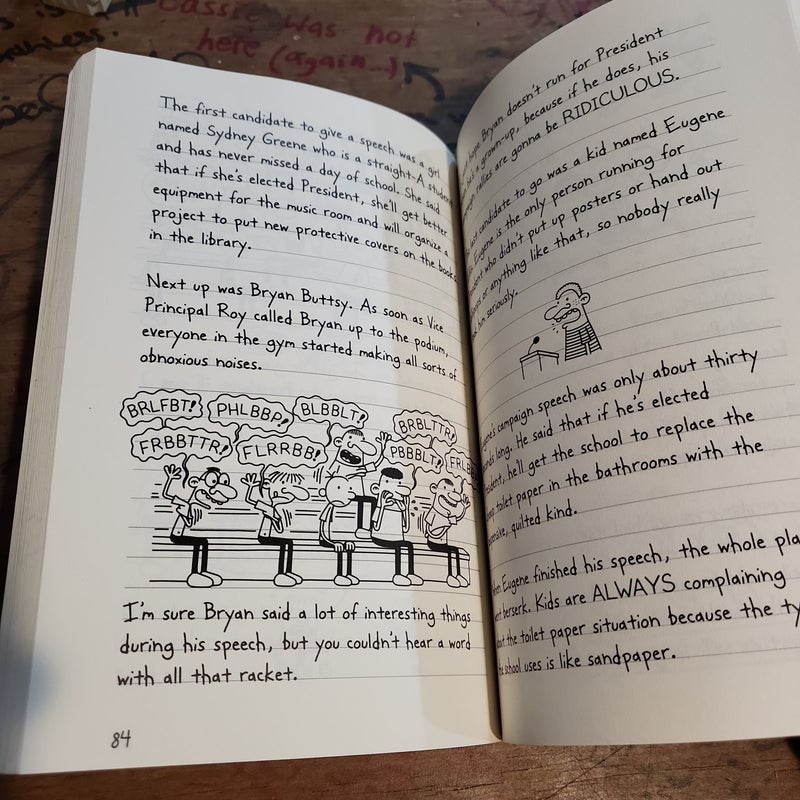 Cassie was not
here (again...)
The first candidate to give a speech was a girl
named Sydney Greene who is a straight-A student
and has never missed a day of school. She said
that if she's elected President, she'll get better
equipment for the music room and will organize a
project to put new protective covers on the books
in the library.
Next up was Bryan Buttsy. As soon as Vice
Principal Roy called Bryan up to the podium,
everyone in the gym started making all sorts of
obnoxious noises.
BRLFBT!
PHLBBP!
BLBBLT!
BRBLTTR!
FRBBTTR!
FLRRBB!
PBBBLT!
I'm sure Bryan said a lot of interesting things
during his speech, but you couldn't hear a word
with all that racket.
84
hope Bryan doesn't run for President
a grown-up, because if he does, his
rallies are gonna be RIDICULOUS.
candidate to go was a kid named Eugene
Eugene is the only person running for
who didn't put up posters or hand out
or anything like that, so nobody really
him seriously.
campaign speech was only about thirty
long. He said that if he's elected
he'll get the school to replace the
toilet paper in the bathrooms with the
quilted kind.
Eugene finished his speech, the whole
berserk. Kids are ALWAYS complaining
the toilet paper situation because the
school uses is like sandpaper.